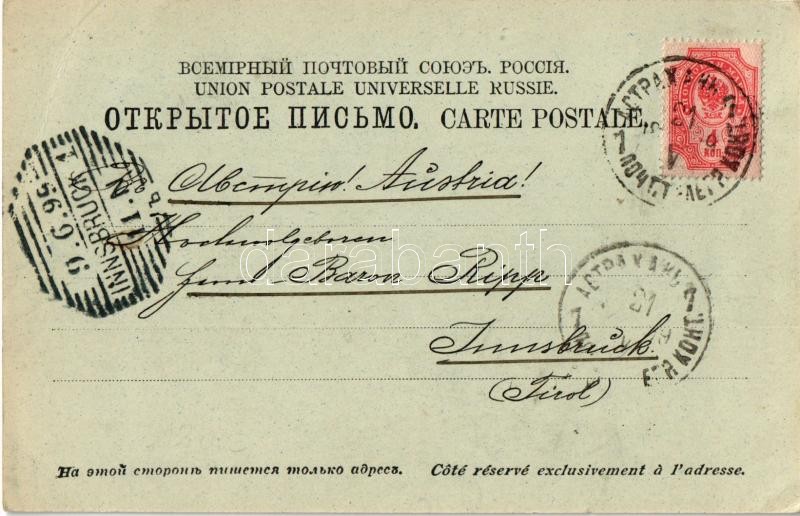 ВСЕМІРНЫЙ ПОЧТОВЫЙ СОЮЗЪ. РОССІЯ.
UNION POSTALE UNIVERSELLE RUSSIE.
ОТКРЫТОЕ ПИСЬМО. CARTE POSTALE.
4
КОП
АСТРАХАНЬ
21
V
7
INNSBRUCK 1
9.6.95
11.
Въ Австрію! Austria!
Hochwolgeboren
Herrn Baron Ripp
Innsbruck
(Tirol)
АСТРАХАНЬ
21
7
КОНТ.
darabanth
На этой сторонѣ пишется только адресъ. Côté réservé exclusivement à l'adresse.